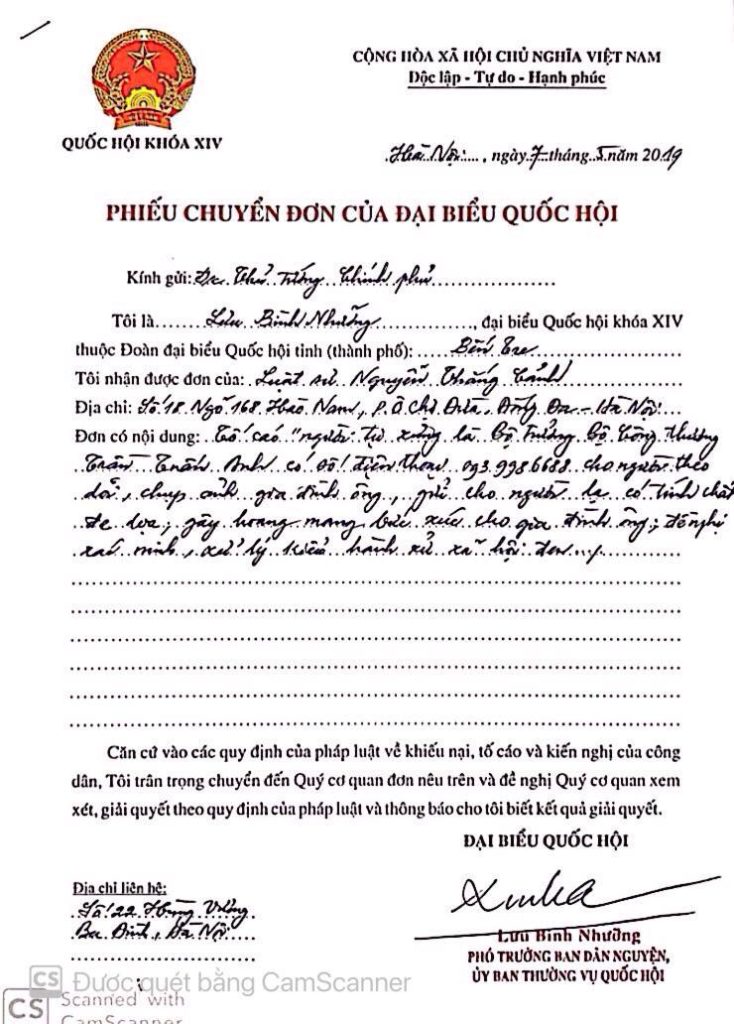 CỘNG HÒA XÃ HỘI CHỦ NGHĨA VIỆT NAM
Độc lập - Tự do - Hạnh phúc
QUỐC HỘI KHÓA XIV
Hà Nội..., ngày 7 tháng 5 năm 2019
PHIẾU CHUYỂN ĐƠN CỦA ĐẠI BIỂU QUỐC HỘI
Kính gửi: Đ/c Thủ tướng Chính phủ
Tôi là Lưu Bình Nhưỡng, đại biểu Quốc hội khóa XIV
thuộc Đoàn đại biểu Quốc hội tỉnh (thành phố): Bến Tre
Tôi nhận được đơn của: Luật sư Nguyễn Thắng Cảnh
Địa chỉ: Số 18 Ngõ 168 Hào Nam, P. Ô Chợ Dừa, Đống Đa - Hà Nội
Đơn có nội dung: Tố cáo "người tự xưng là Bộ trưởng Bộ Công thương
Trần Tuấn Anh có số điện thoại 093.9986688 cho người theo
dõi, chụp ảnh gia đình ông, gửi cho người lạ có tính chất
đe dọa; gây hoang mang bức xúc cho gia đình ông; đề nghị
xác minh, xử lý kiểu hành xử xã hội đen./.
Căn cứ vào các quy định của pháp luật về khiếu nại, tố cáo và kiến nghị của công
dân, Tôi trân trọng chuyển đến Quý cơ quan đơn nêu trên và đề nghị Quý cơ quan xem
xét, giải quyết theo quy định của pháp luật và thông báo cho tôi biết kết quả giải quyết.
ĐẠI BIỂU QUỐC HỘI
Địa chỉ liên hệ:
Số 22 Hùng Vương
Ba Đình, Hà Nội
Lưu Bình Nhưỡng
PHÓ TRƯỞNG BAN DÂN NGUYỆN,
ỦY BAN THƯỜNG VỤ QUỐC HỘI
CS Được quét bằng CamScanner
CS Scanned with
CamScanner